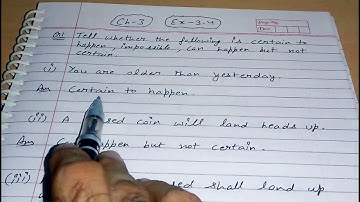 Ch-3 Ex-3.4
Q1 Tell whether the following is certain to
happen, impossible, can happen but not
certain.
i) You are older than yesterday.
Ans Certain to happen.
(ii) A sed coin will land heads up.
Ans C happen but not certain.
(iii) sed shall land up